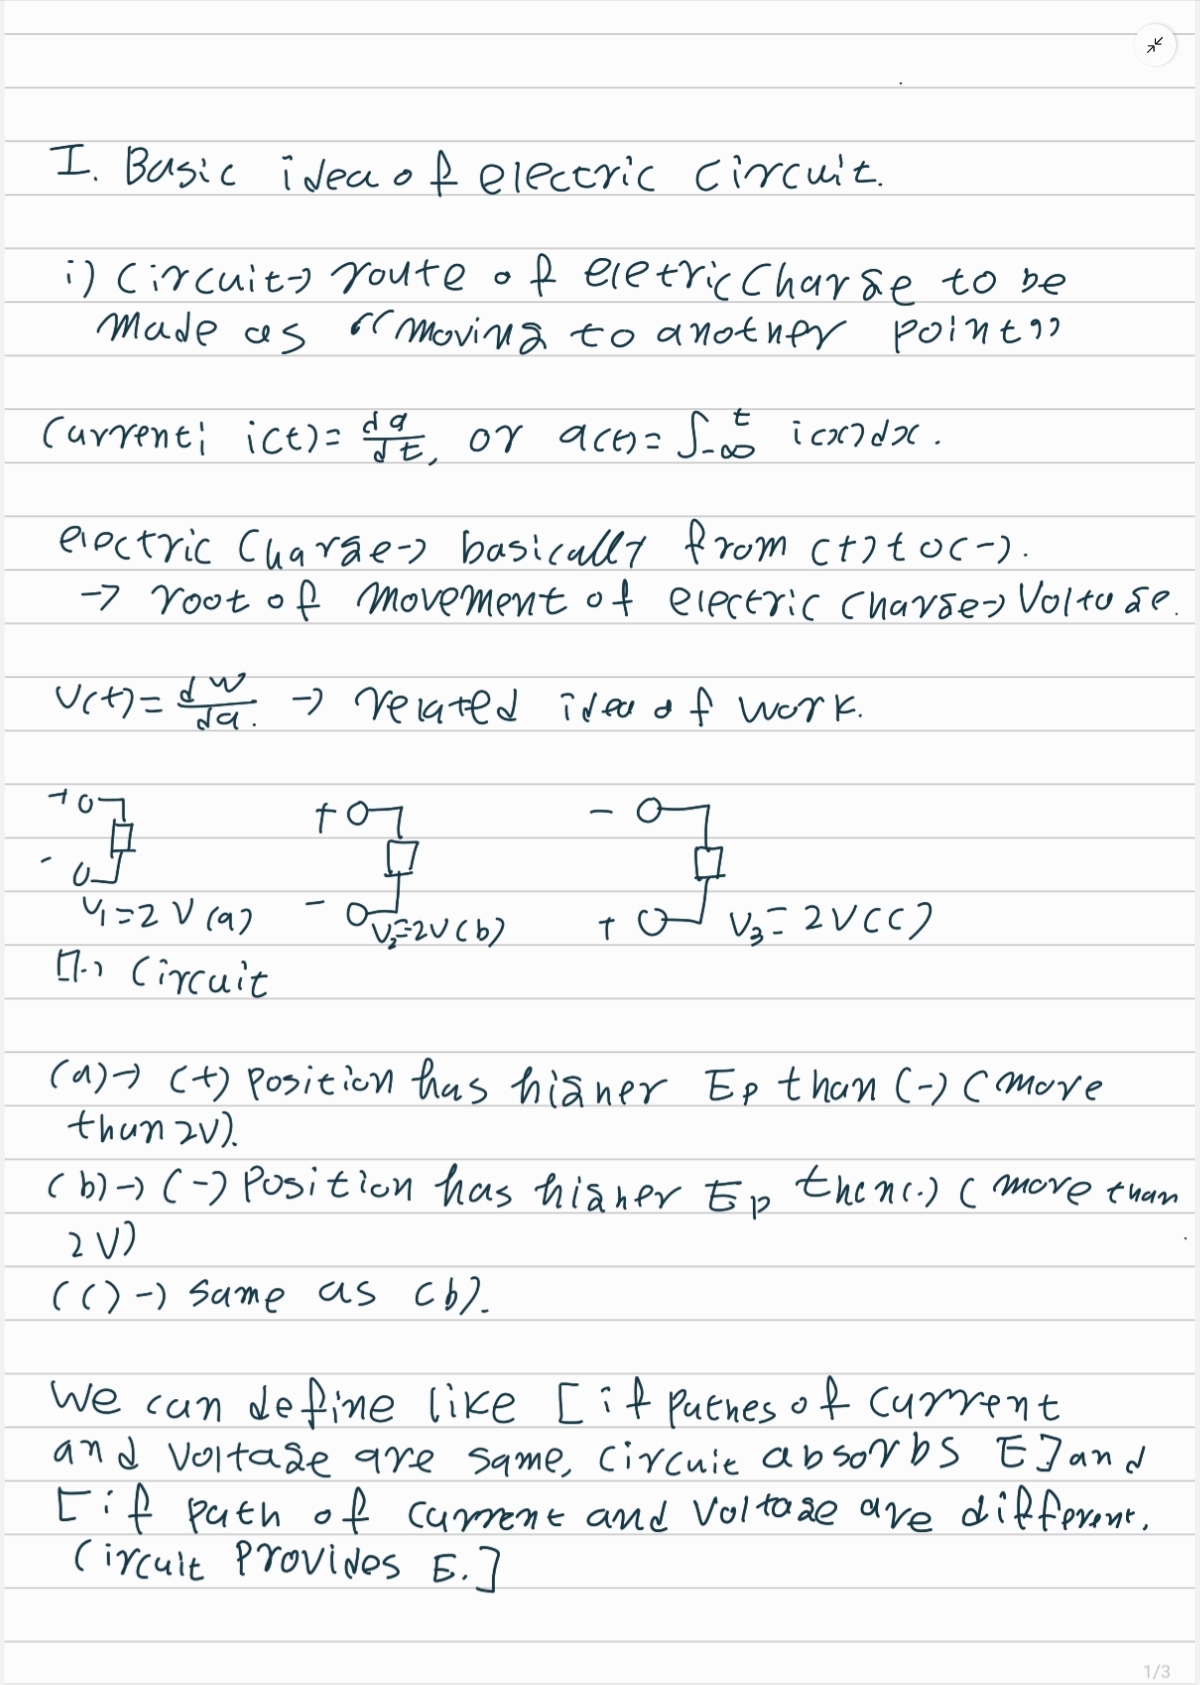 I. Basic idea of electric circuit.
i) Circuit→ route of eletric Charge to be
made as “moving to another point”
Current; i(t)= dq/dt, or q(t)= ∫-∞^t i(x)dx.
electric Charge→ basically from (+) to (-).
→ root of movement of electric Charge→ Voltage.
V(t)= dw/dq. → related idea of work.
+ + -
- - +
V₁=2V (a) V₂=2V (b) V₃=2V (c)
Circuit
(a)→ (+) Position has higher Ep than (-) (more
than 2V).
(b)→ (-) Position has higher Ep then(.) (more than
2V)
(c)→ same as (b).
We can define like [if pathes of current
and voltage are same, circuit absorbs E] and
[if path of current and voltage are different,
Circuit provides E.]
1/3